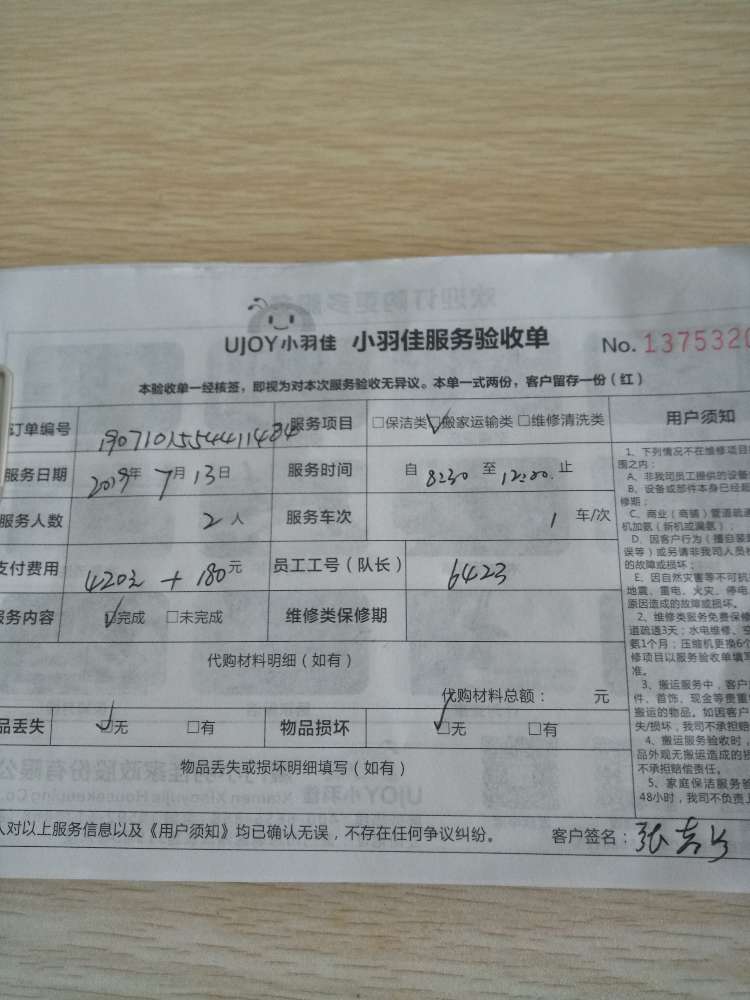 UJOY小羽佳 小羽佳服务验收单 No. 1375320
本验收单一经核签，即视为对本次服务验收无异议。本单一式两份，客户留存一份（红）
订单编号 1907101554411484 服务项目 □保洁类 ☑搬家运输类 □维修清洗类 用户须知
服务日期 2019年 7月 13日 服务时间 自 8:30 至 12:00 止
服务人数 2人 服务车次 1 车/次
支付费用 420元 + 180元 员工工号（队长） 6423
服务内容 ☑完成 □未完成 维修类保修期
代购材料明细（如有）
代购材料总额： 元
品丢失 ☑无 □有 物品损坏 ☑无 □有
物品丢失或损坏明细填写（如有）
人对以上服务信息以及《用户须知》均已确认无误，不存在任何争议纠纷。 客户签名：张
1、下列情况不在维修项目
围之内：
A、非我司员工提供的设备
B、设备或部件本身已经超
修期；
C、商业（商铺）管道疏通
机加氨（新机或漏氨）；
D、因客户行为（擅自装
误等）或另请非我司人员
的故障或损坏；
E、因自然灾害等不可抗
地震、雷电、火灾、停电
原因造成的故障或损坏。
2、维修类服务免费保修
道疏通3天；水电维修、空
氨1个月；压缩机更换6个
修项目以服务验收单填写
准。
3、搬运服务中，客户
件、首饰、现金等贵重
搬运的物品。如因客户
失/损坏，我司不承担赔
4、搬运服务验收时，
品外观无搬运造成的损
不承担赔偿责任。
5、家庭保洁服务验
48小时，我司不负责